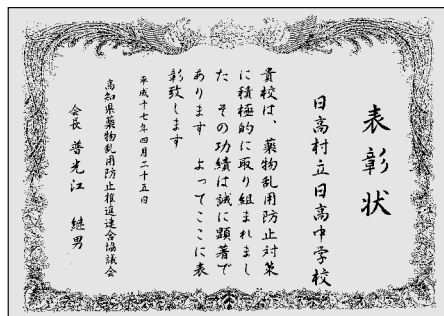 表彰状
日高村立日高中学校
貴校は、薬物乱用防止対策
に積極的に取り組まれまし
た その功績は誠に顕著で
あります よってここに表
彰致します
平成十七年四月二十五日
高知県薬物乱用防止推進連合協議会
会長 普光江 継男